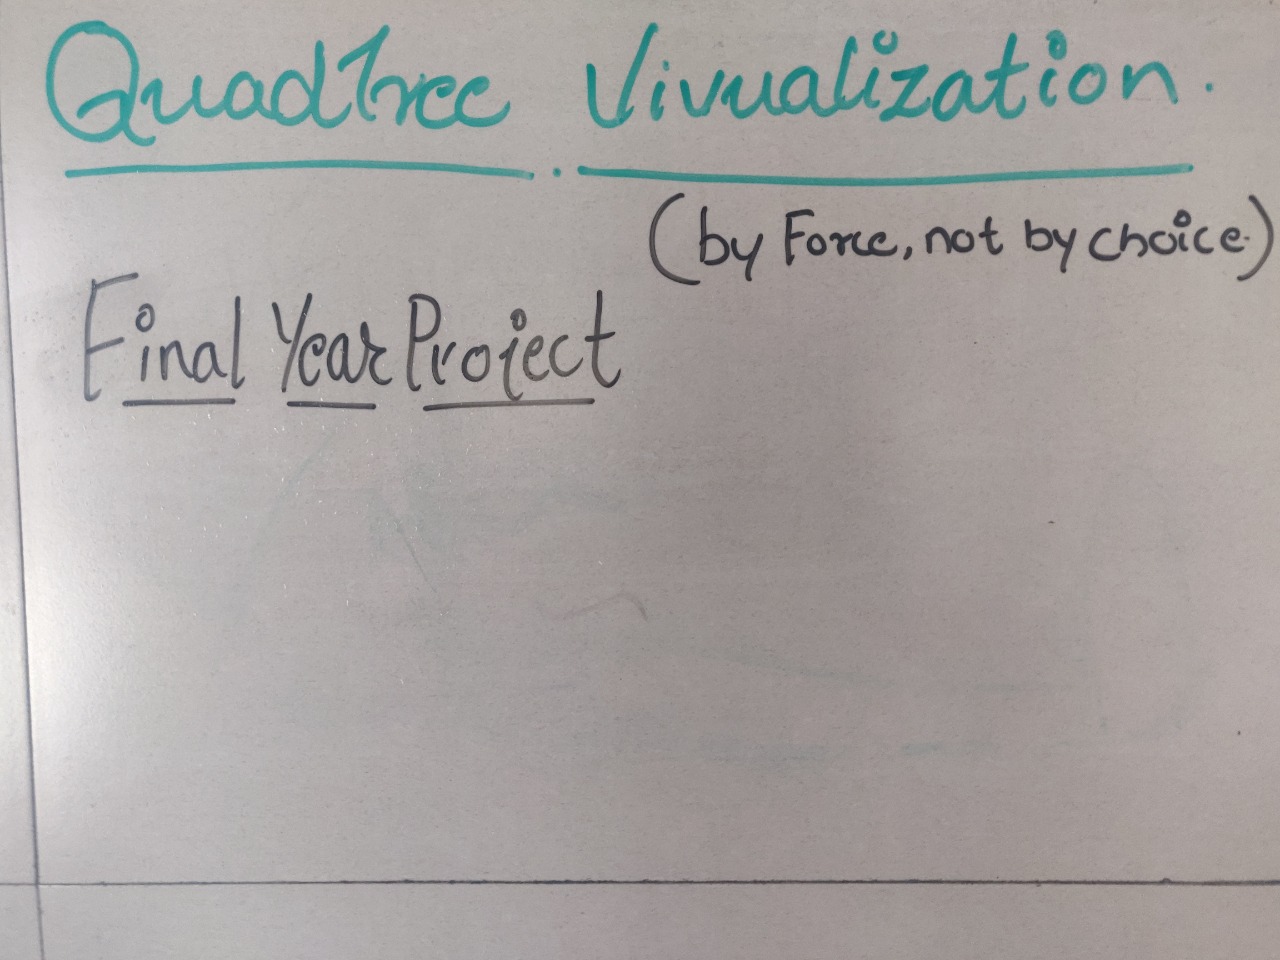 QuadTree Vivualization.
(by Force, not by choice.)
Final Year Project